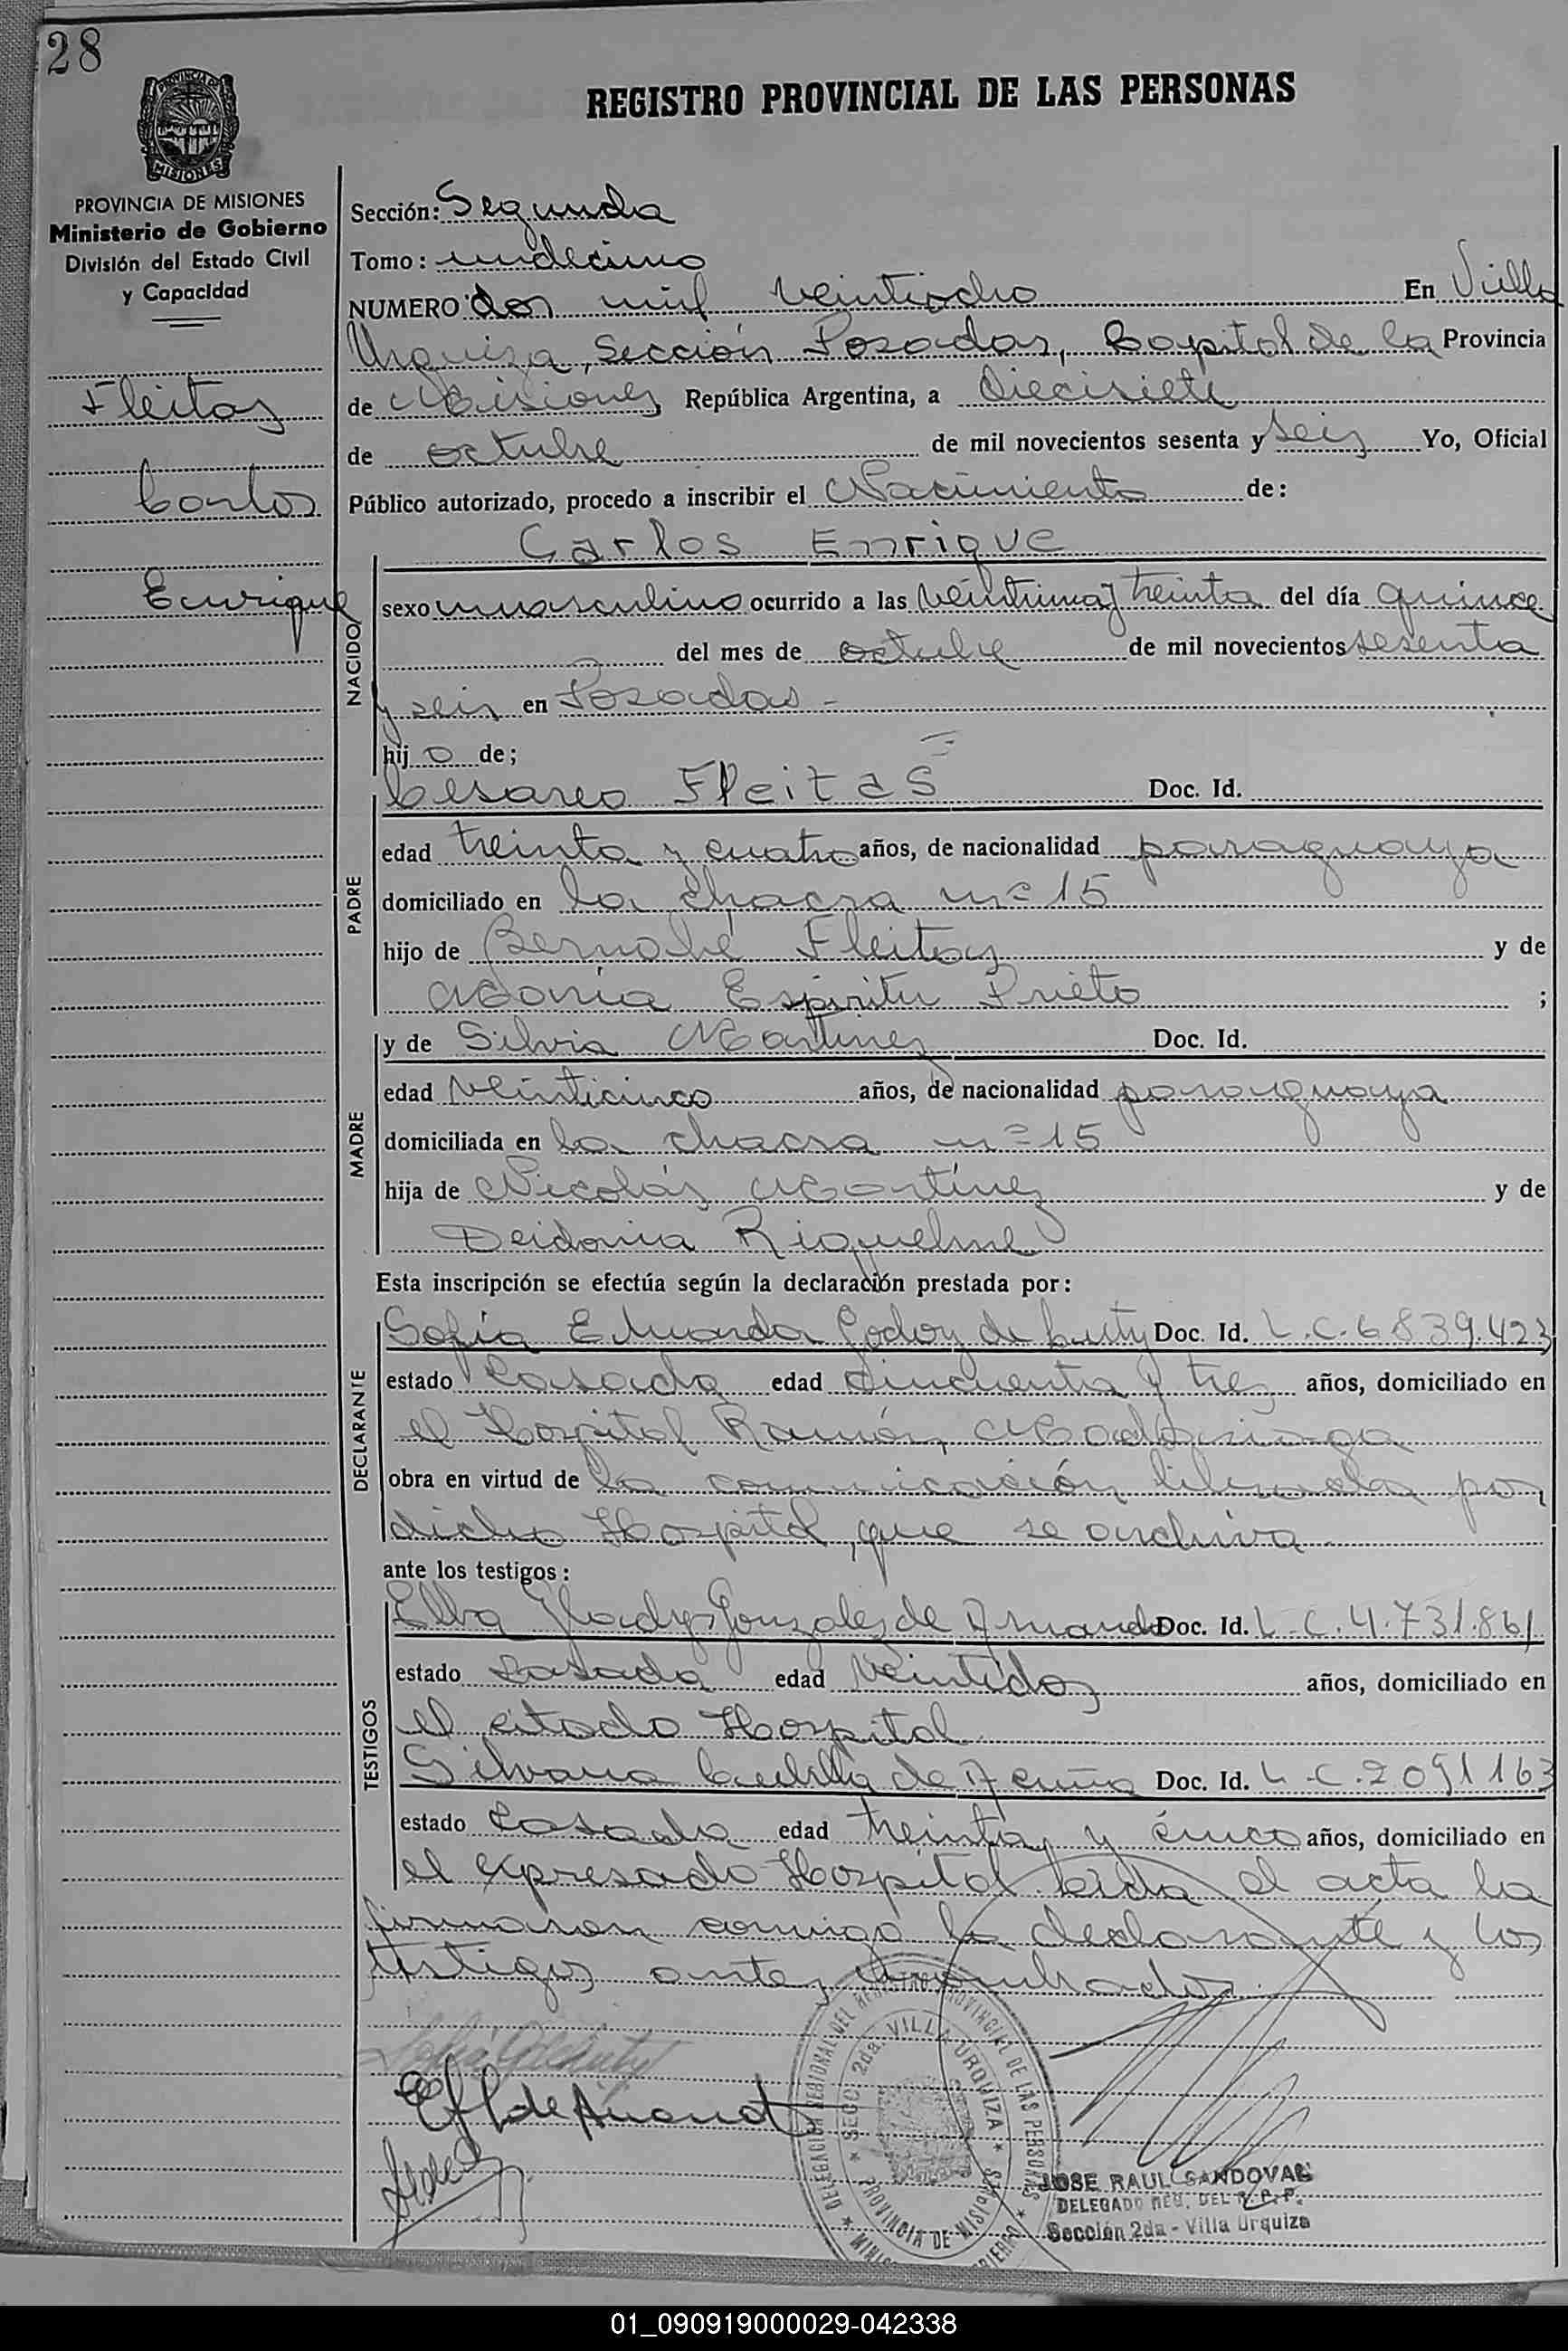 28
PROVINCIA DE
MISIONES
REGISTRO PROVINCIAL DE LAS PERSONAS
PROVINCIA DE MISIONES
Ministerio de Gobierno
División del Estado Civil
y Capacidad
Fleitas
Carlos
Enrique
Sección: Segunda
Tomo: undecimo
NUMERO dos mil veintiocho En Villa
Urquiza, Sección Posadas, Capital de la Provincia
de Misiones República Argentina, a diecisiete
de octubre de mil novecientos sesenta y seis Yo, Oficial
Público autorizado, procedo a inscribir el Nacimiento de:
Carlos Enrique
NACIDO
sexo masculino ocurrido a las veintiuna y treinta del día quince
del mes de octubre de mil novecientos sesenta
y seis en Posadas -
hijo de;
PADRE
Cesareo Fleitas Doc. Id.
edad treinta y cuatro años, de nacionalidad paraguaya
domiciliado en la chacra nº 15
hijo de Bernabé Fleitas y de
María Espíritu Prieto ;
MADRE
y de Silvia Martinez Doc. Id.
edad veinticinco años, de nacionalidad paraguaya
domiciliada en la chacra nº 15
hija de Nicolás Martínez y de
Deidonia Riquelme
Esta inscripción se efectúa según la declaración prestada por:
DECLARANTE
Sofía Eduarda Godoy de Doc. Id. L.C.6839.423
estado Casada edad cincuenta y tres años, domiciliado en
el Hospital Ramón Madariaga
obra en virtud de la comunicación librada por
dicho Hospital, que se archiva
ante los testigos:
TESTIGOS
Elba Gladys Gonzales de Doc. Id. L.C.4.731.861
estado Casada edad veintidos años, domiciliado en
el citado Hospital
Silvana de Acuña Doc. Id. L.C.2091163
estado Casada edad treinta y cinco años, domiciliado en
el expresado Hospital leída el acta la
firmaron conmigo la declarante y los
testigos antes nombrados.
DELEGACION REGIONAL DEL REGISTRO PROVINCIAL DE LAS PERSONAS
SECC. 2da. VILLA URQUIZA
PROVINCIA DE MISIONES
JOSE RAUL SANDOVAL
DELEGADO REG. DEL R.P.P.
Sección 2da - Villa Urquiza
01_090919000029-042338